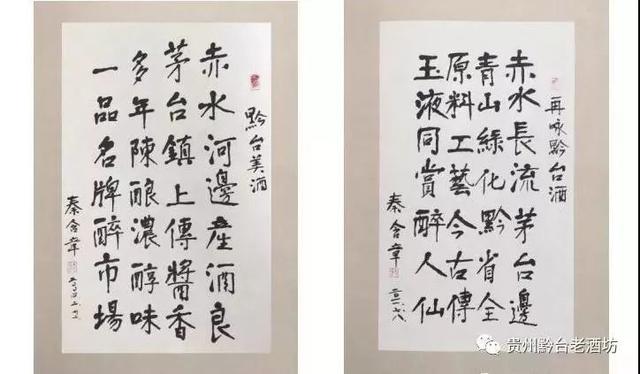 黔台美酒
赤水河邊產酒良
茅台鎮上傳醬香
多年陳釀濃醇味
一品名牌醉市場
秦含章
再咏黔台酒
赤水長流茅台邊
青山綠化黔省全
原料工藝今古傳
玉液同賞醉人仙
秦含章
贵州黔台老酒坊